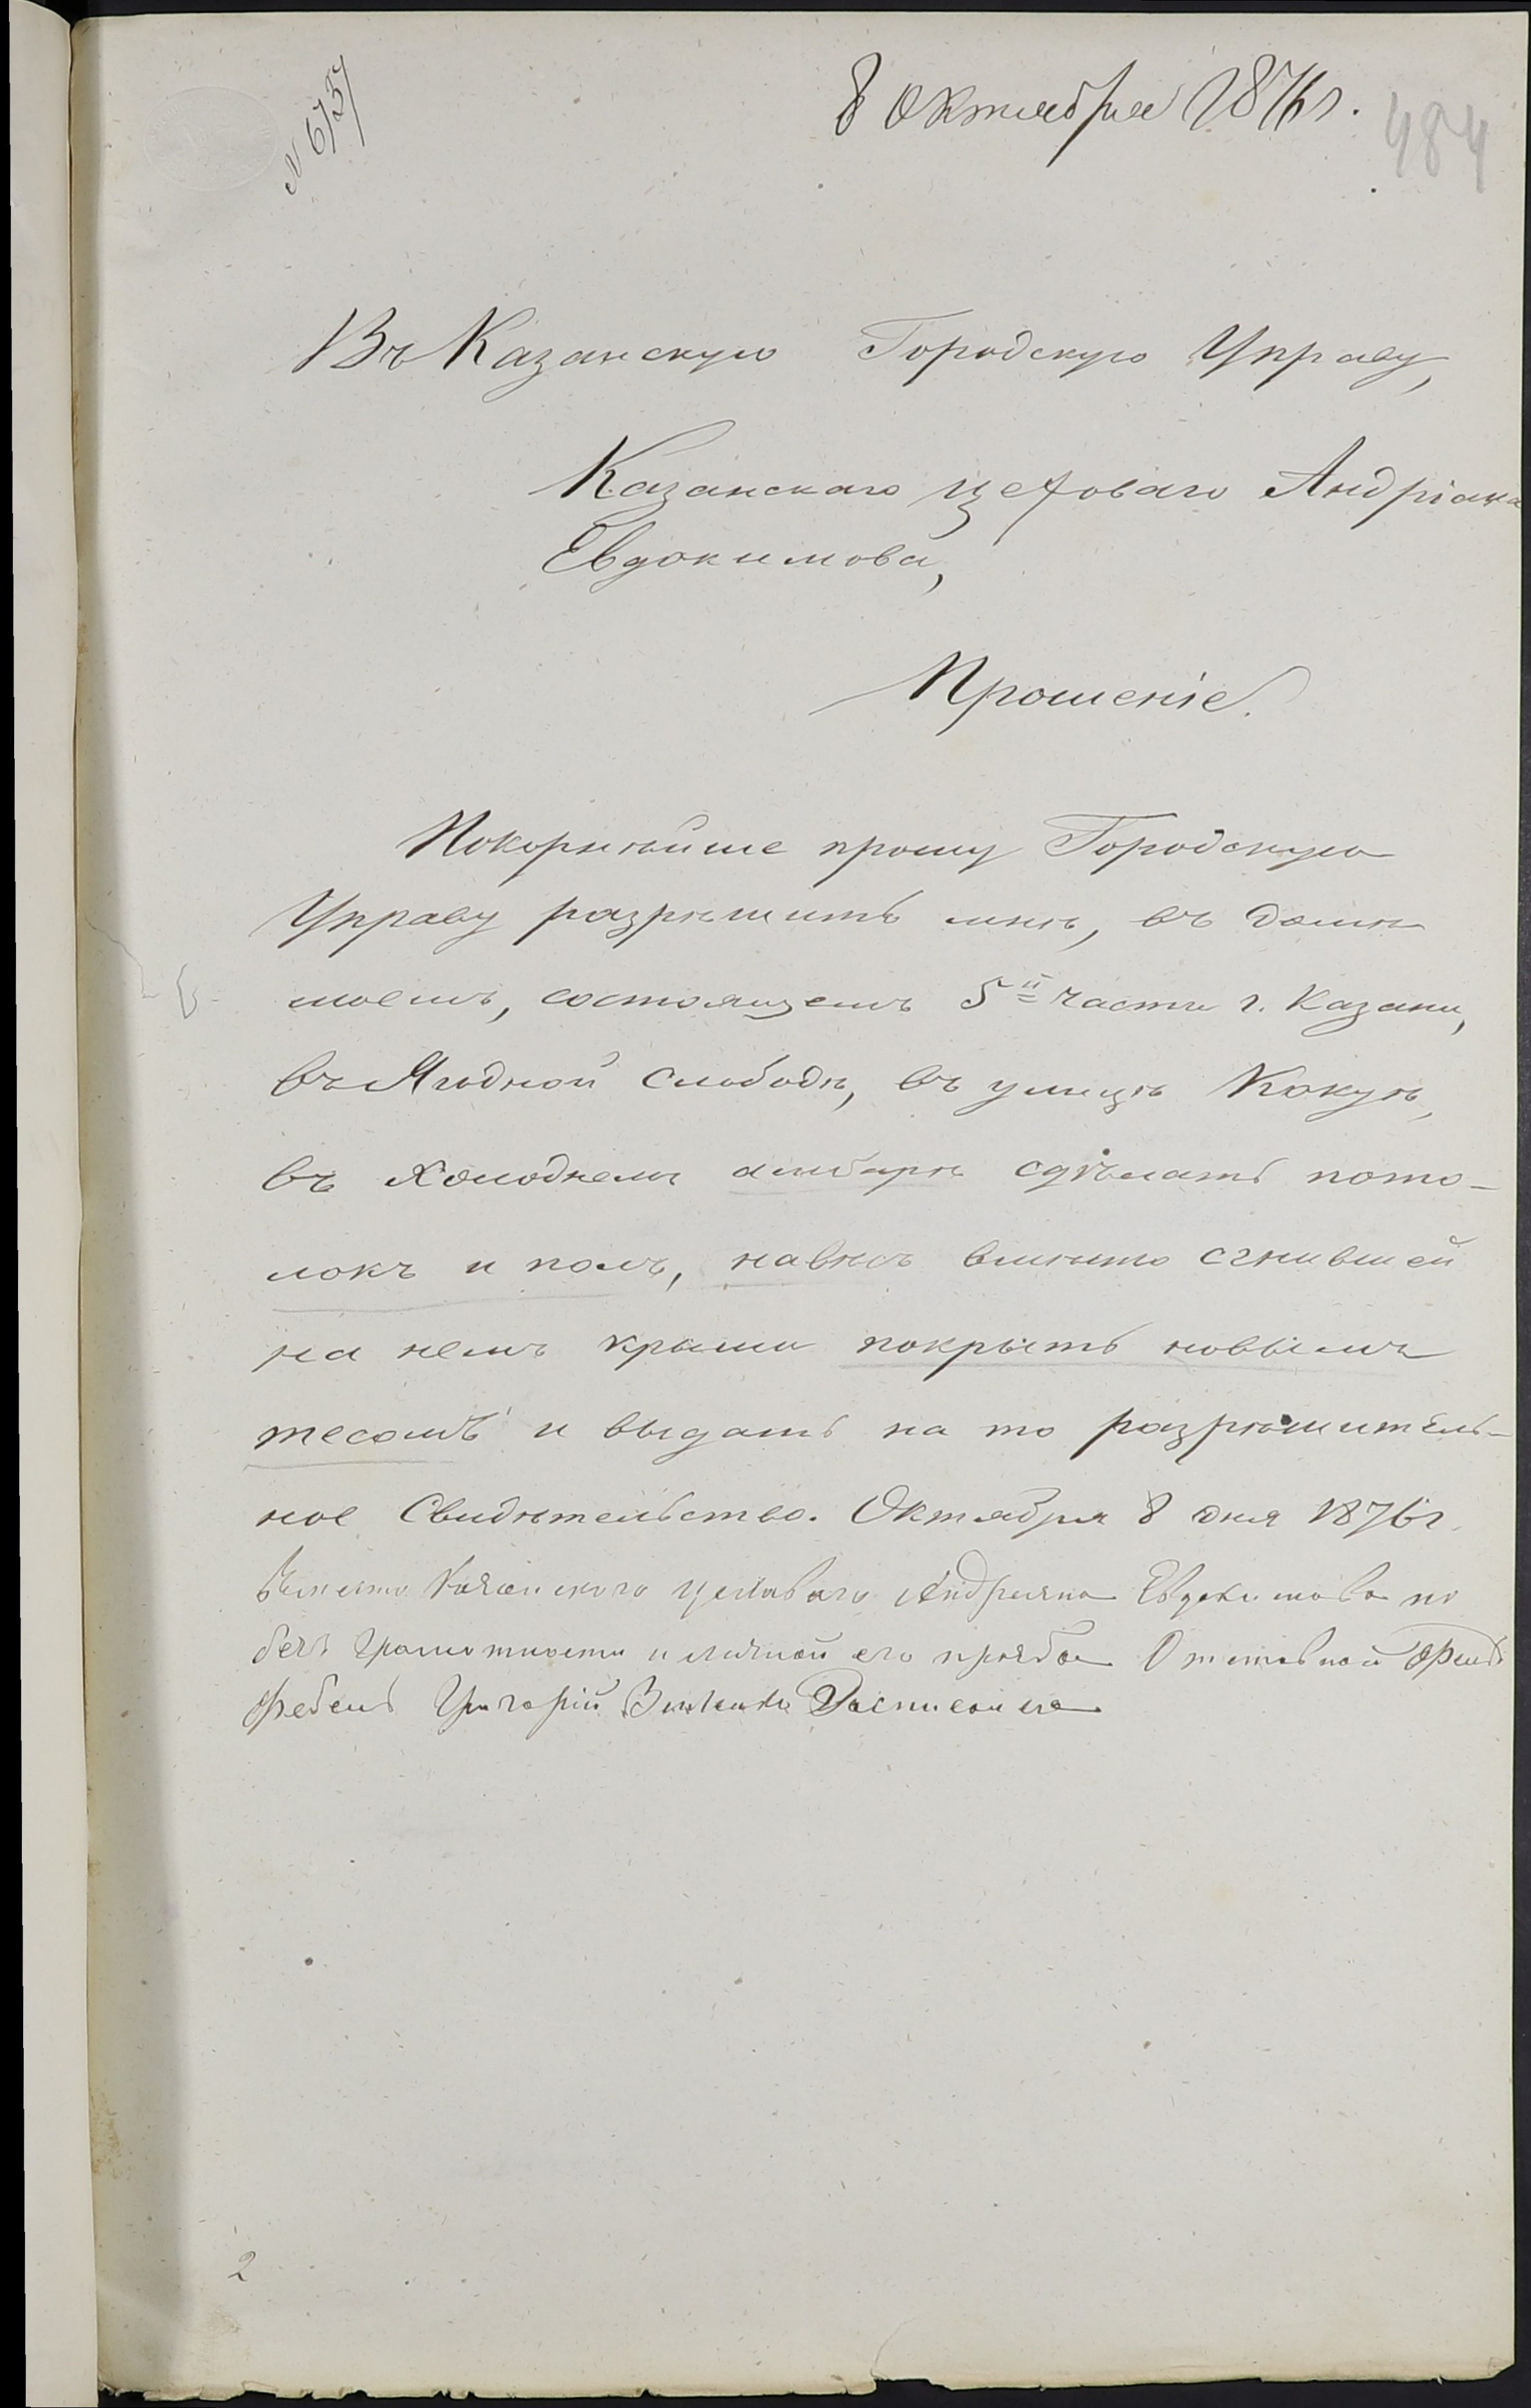 8 Октября 1876 г.
484
N 6737
Въ Казанскую Городскую Управу,
Казанскаго цеховаго Андріана
Евдокимова,
Прошеніе.
Покорнѣйше прошу Городскую
Управу разрѣшить мнѣ, въ домѣ
моемъ, состоящемъ 5й части г. Казани,
въ Ягодной слободѣ, въ улицѣ Кокуѣ,
въ холодномъ амбарѣ сдѣлать пото-
локъ и полъ, навѣсъ вмѣсто сгнившей
на немъ крыши покрыть новымъ
тесомъ и выдать на то разрѣшитель-
ное Свидѣтельство. Октября 8 дня 1876 г.
Вместо Казанского цеховаго Андреяна Евдокимова по
безъ грамотности и личной его прозбы Отставной Фельд
фебель Григорій Расписался
2